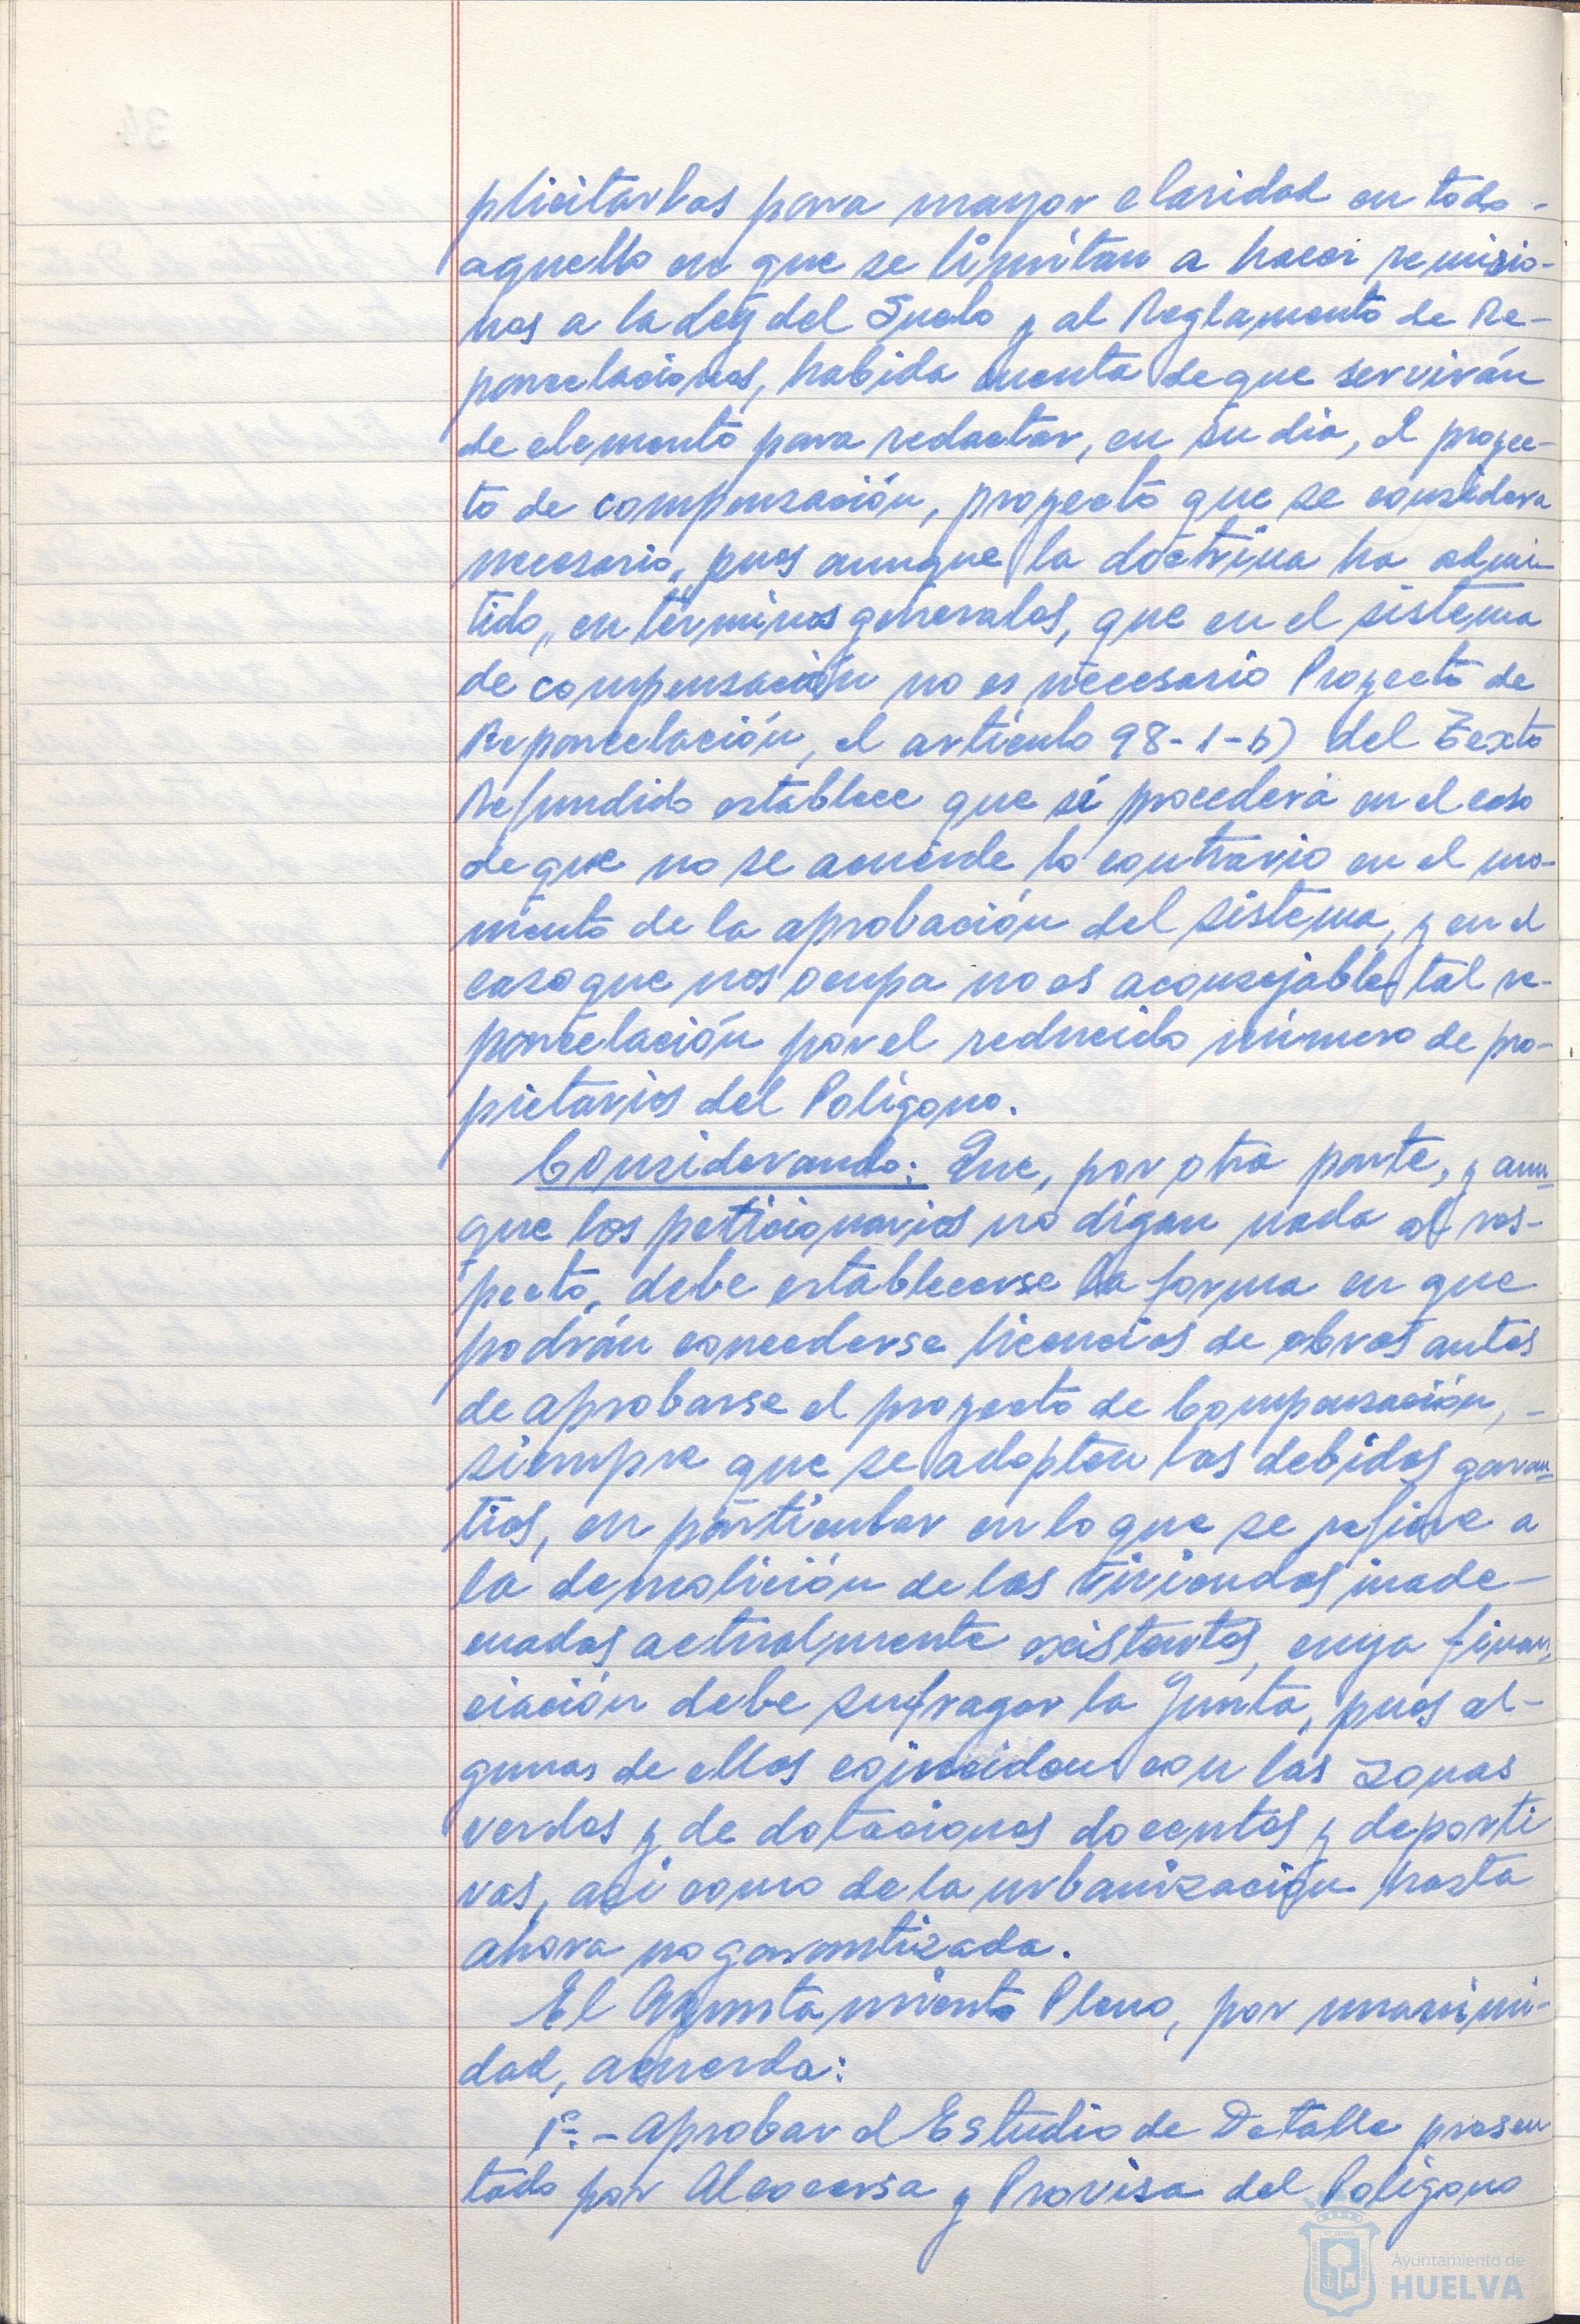 plicitarlas para mayor claridad en todo -
aquello en que se limitan a hacer remisio-
nes a la Ley del Suelo y al Reglamento de Re-
parcelaciones, habida cuenta de que servirán
de elemento para redactar, en su dia, el proyec-
to de compensación, proyecto que se considera
necesario, pues aunque la doctrina ha admi-
tido, en términos generales, que en el sistema
de compensación no es necesario Proyecto de
Reparcelación, el artículo 98-1-b) del Texto
Refundido establece que sí procederá en el caso
de que no se acuerde lo contrario en el mo-
mento de la aprobación del sistema, y en el
caso que nos ocupa no es aconsejable tal re-
parcelación por el reducido número de pro-
pietarios del Polígono.
Considerando: Que, por otra parte, y aun-
que los peticionarios no digan nada al res-
pecto, debe establecerse la forma en que
podrán concederse licencias de obras antes
de aprobarse el proyecto de Compensación, -
siempre que se adopten las debidas garan-
tías, en particular en lo que se refiere a
la demolición de las viviendas inade-
cuadas actualmente existentes, cuya finan-
ciación debe sufragar la Junta, pues al-
gunas de ellas coinciden con las zonas
verdes y de dotaciones docentes y deporti
vas, así como de la urbanización hasta
ahora no garantizada.
El Ayuntamiento Pleno, por unanimi-
dad, acuerda:
1º.- Aprobar el Estudio de Detalle presen
tado por Alcocersa y Provisa del Polígono
Ayuntamiento de
HUELVA